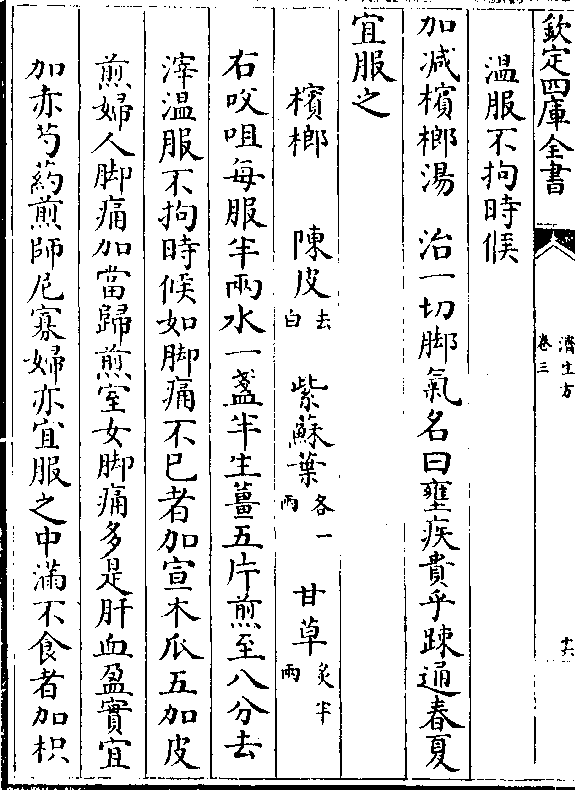 欽定四庫全書
濟生方
卷三
十六
温服不拘時候
加減檳榔湯 治一切脚氣名曰壅疾貴乎踈通春夏
宜服之
檳榔 陳皮去白 紫蘇葉各一兩 甘草炙半兩
右㕮咀每服半兩水一盞半生薑五片煎至八分去
滓温服不拘時候如脚痛不已者加宣木瓜五加皮
煎婦人脚痛加當歸煎室女脚痛多是肝血盈實宜
加赤芍藥煎師尼寡婦亦宜服之中滿不食者加枳